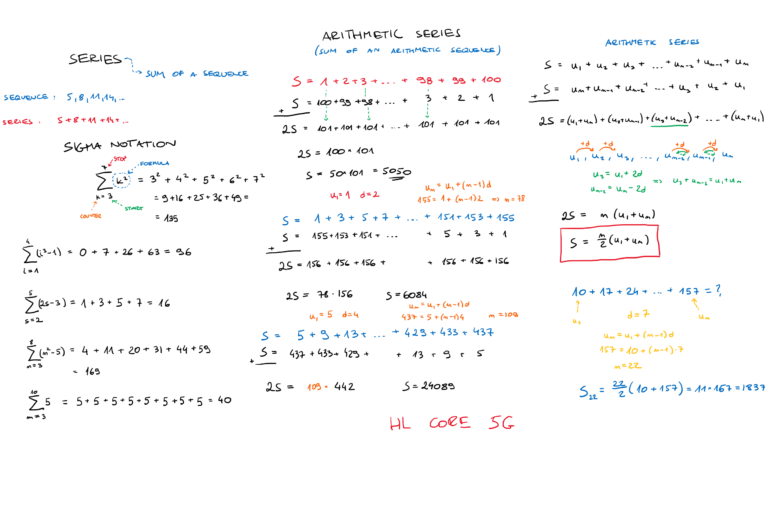 SERIES
SUM OF A SEQUENCE
SEQUENCE : 5, 8, 11, 14, ...
SERIES : 5 + 8 + 11 + 14 + ...
SIGMA NOTATION
STOP
FORMULA
7
∑ k² = 3² + 4² + 5² + 6² + 7²
k = 3
= 9 + 16 + 25 + 36 + 49 =
COUNTER
START
= 135
4
∑ (i³-1) = 0 + 7 + 26 + 63 = 96
i = 1
5
∑ (2s-3) = 1 + 3 + 5 + 7 = 16
s = 2
8
∑ (n²-5) = 4 + 11 + 20 + 31 + 44 + 59
n = 3
= 169
10
∑ 5 = 5 + 5 + 5 + 5 + 5 + 5 + 5 + 5 = 40
n = 3
ARITHMETIC SERIES
(SUM OF AN ARITHMETIC SEQUENCE)
S = 1 + 2 + 3 + ... + 98 + 99 + 100
+ S = 100 + 99 + 98 + ... + 3 + 2 + 1
2S = 101 + 101 + 101 + ... + 101 + 101 + 101
2S = 100 · 101
S = 50 · 101 = 5050
u₁ = 1 d = 2
uₙ = u₁ + (n-1)d
155 = 1 + (n-1)2 => n = 78
S = 1 + 3 + 5 + 7 + ... + 151 + 153 + 155
+ S = 155 + 153 + 151 + ... + 5 + 3 + 1
2S = 156 + 156 + 156 + + 156 + 156 + 156
2S = 78 · 156 S = 6084
u₁ = 5 d = 4
uₙ = u₁ + (n-1)d
437 = 5 + (n-1)4 n = 109
S = 5 + 9 + 13 + ... + 429 + 433 + 437
+ S = 437 + 433 + 429 + + 13 + 9 + 5
2S = 109 · 442 S = 24089
HL CORE 5G
ARITHMETIC SERIES
S = u₁ + u₂ + u₃ + ... + uₙ₋₂ + uₙ₋₁ + uₙ
+ S = uₙ + uₙ₋₁ + uₙ₋₂ + ... + u₃ + u₂ + u₁
2S = (u₁+uₙ) + (u₂+uₙ₋₁) + (u₃+uₙ₋₂) + ... + (uₙ+u₁)
+d +d +d +d
u₁, u₂, u₃, ..., uₙ₋₂, uₙ₋₁, uₙ
u₃ = u₁ + 2d
uₙ₋₂ = uₙ - 2d => u₃ + uₙ₋₂ = u₁ + uₙ
2S = n (u₁ + uₙ)
S = n/2 (u₁ + uₙ)
10 + 17 + 24 + ... + 157 = ?
u₁ d = 7 uₙ
uₙ = u₁ + (n-1)d
157 = 10 + (n-1) · 7
n = 22
S₂₂ = 22/2 (10 + 157) = 11 · 167 = 1837